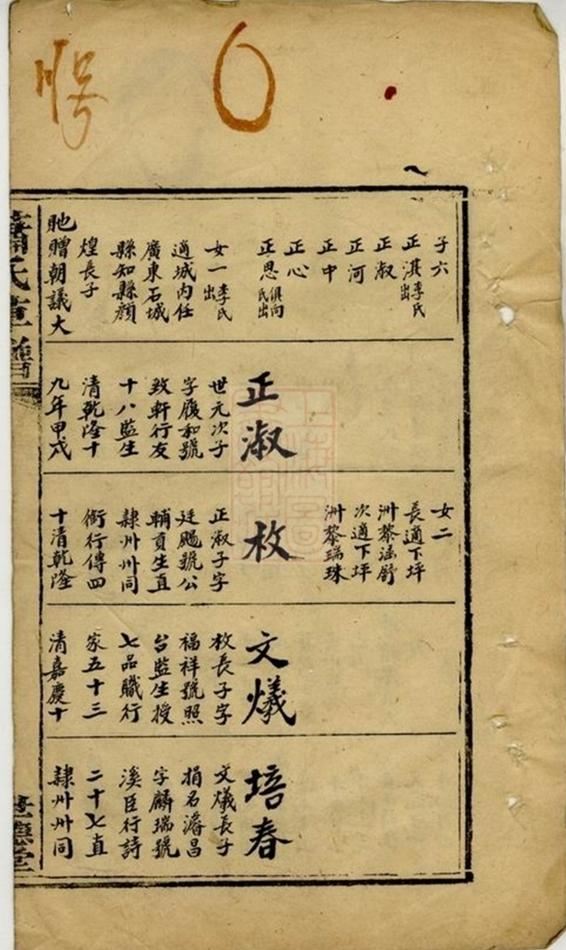 子六
正淇李氏出
正淑
正河
正中
正心
正恩俱向氏出
女一李氏出
適城內任
廣東石城
縣知縣顏
煌長子
貤贈朝議大
正淑
世元次子
字履和號
致軒行友
十八監生
清乾隆十
九年甲戌
女二
長適下坪
洲黎涵舒
次適下坪
洲黎瑞珠
枚
正淑子字
廷颺號公
輔貢生直
隸州州同
銜行傳四
十清乾隆
文爔
枚長子字
福祥號照
台監生授
七品職行
家五十三
清嘉慶十
培春
文爔長子
捐名濬昌
字麟瑞號
溪臣行詩
二十七直
隸州州同
蕭氏支譜
世德堂